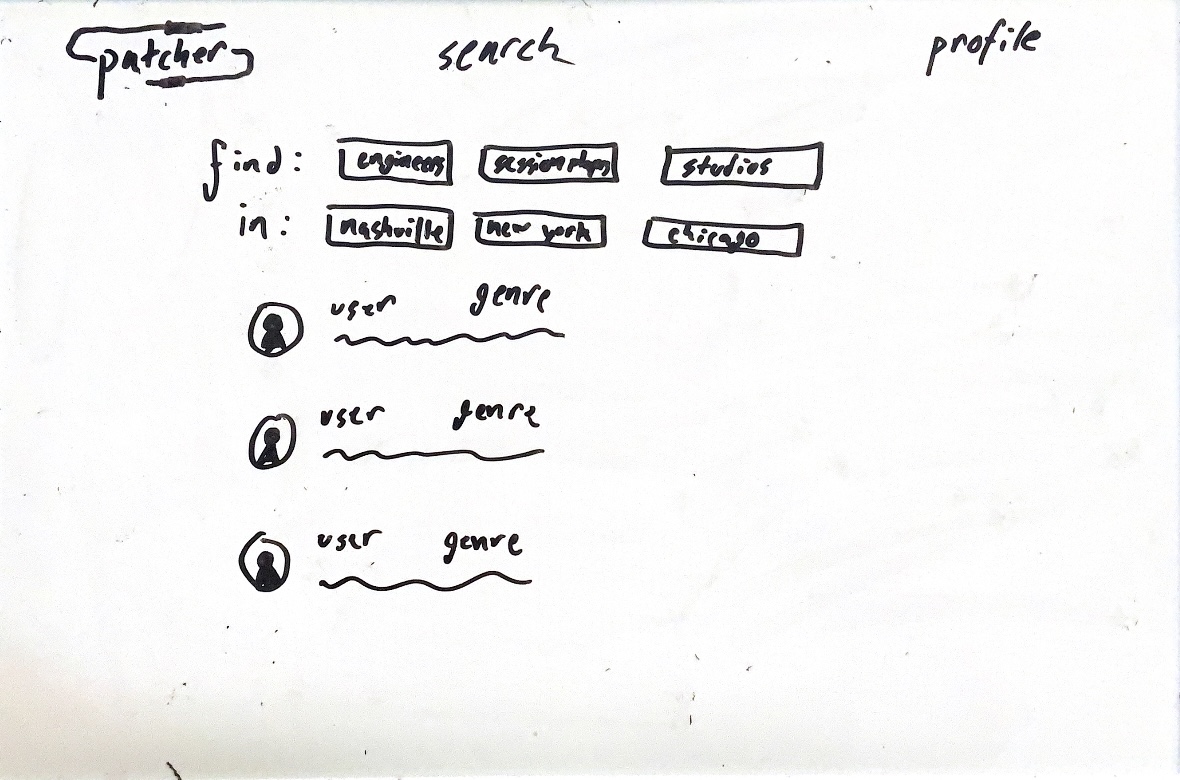 patcher search profile
find: engineers session plyrs studios
in: nashville new york chicago
user genre
user genre
user genre